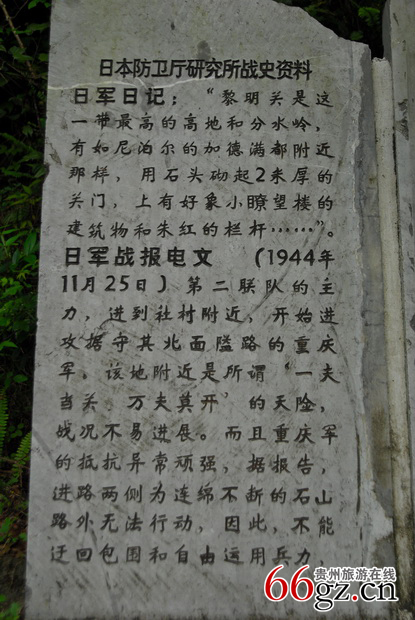 日本防卫厅研究所战史资料
日军日记：“黎明关是这
一带最高的高地和分水岭，
有如尼泊尔的加德满都附近
那样，用石头砌起2米厚的
关门，上有好象小瞭望楼的
建筑物和朱红的栏杆……”。
日军战报电文（1944年
11月25日）第二联队的主
力，进到社村附近，开始进
攻据守其北面隘路的重庆
军，该地附近是所谓“一夫
当关，万夫莫开”的天险，
战况不易进展。而且重庆军
的抵抗异常顽强，据报告，
进路两侧为连绵不断的石山
路外无法行动，因此，不能
迂回包围和自由运用兵力
贵州旅游在线
66gz.cn